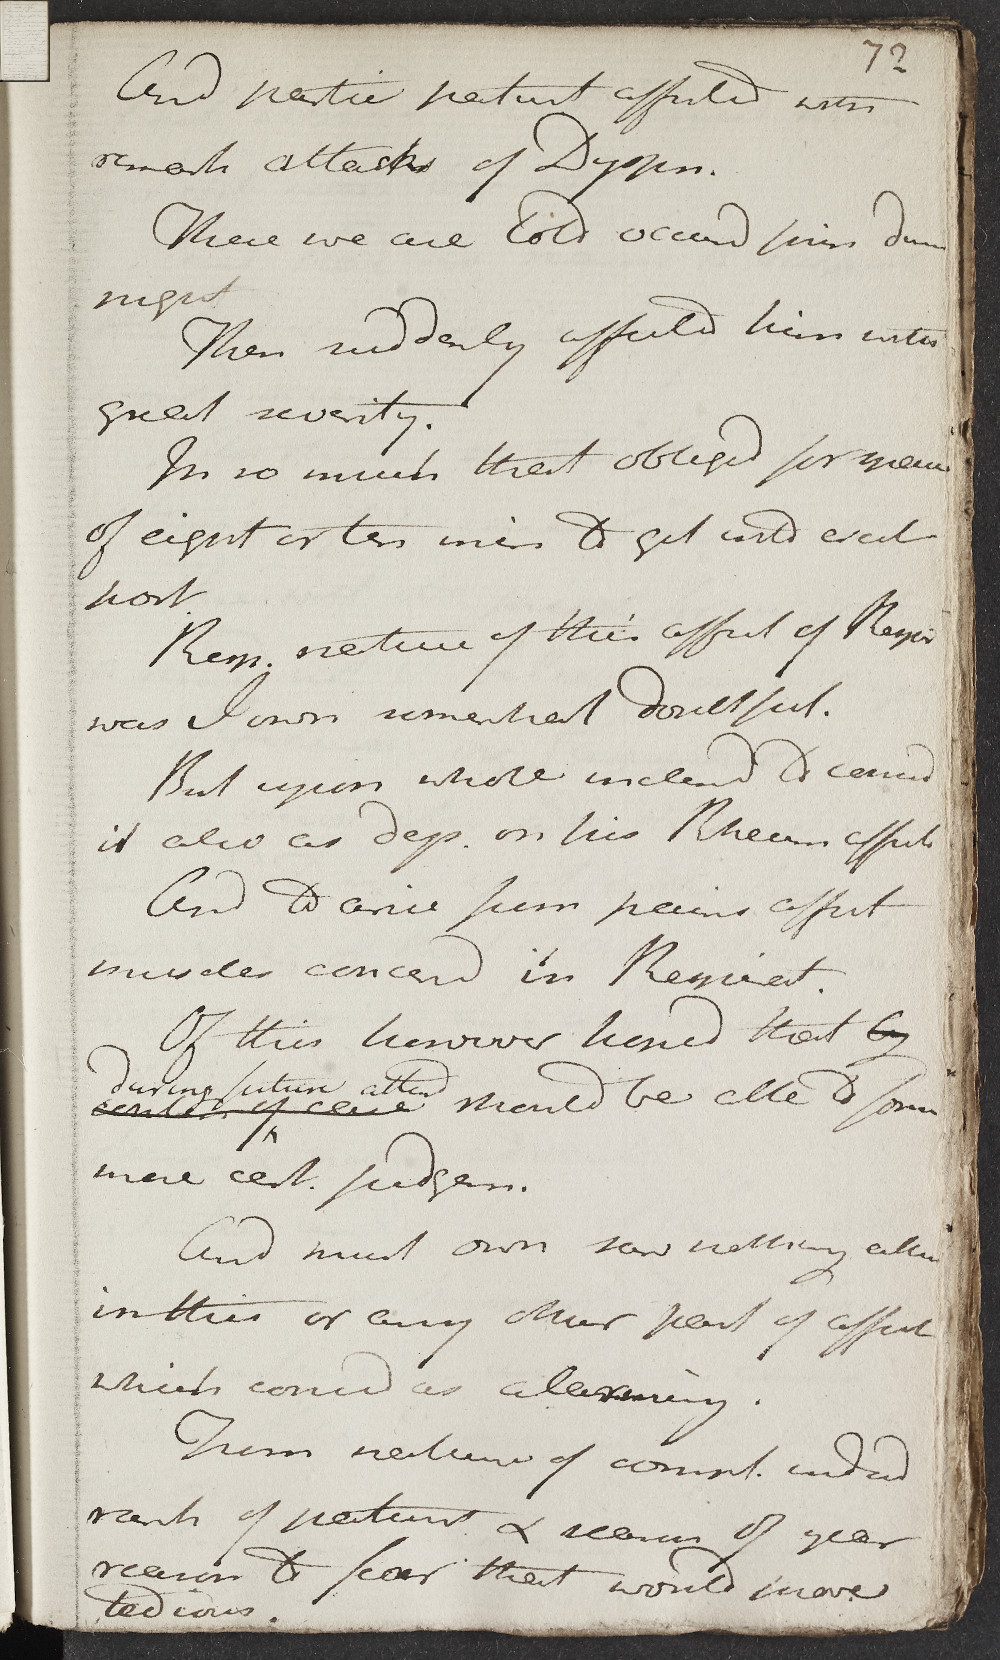 72
And partic patient affected with
remark attacks of Dyspn.
These we are told occurrd from dur
night
Then suddenly affected him with
great severity.
In so much that obliged for space
of eight or ten min to get into erect
post.
Resp. nature of this affect of Respir
was I own somewhat doubtful.
But upon whole inclend to consid
it also as dep. on his Rheum affect
And to arise from pains affect
muscles concernd in Respirat.
Of this however hoped that by
during future attend
course of case should be able to form
more cert. judgem.
And must own saw nothing either
in this or any other part of affect
which consid as alarming.
From nature of compl. indeed
rank of patient & season of year
reason to fear that would prove
tedious.